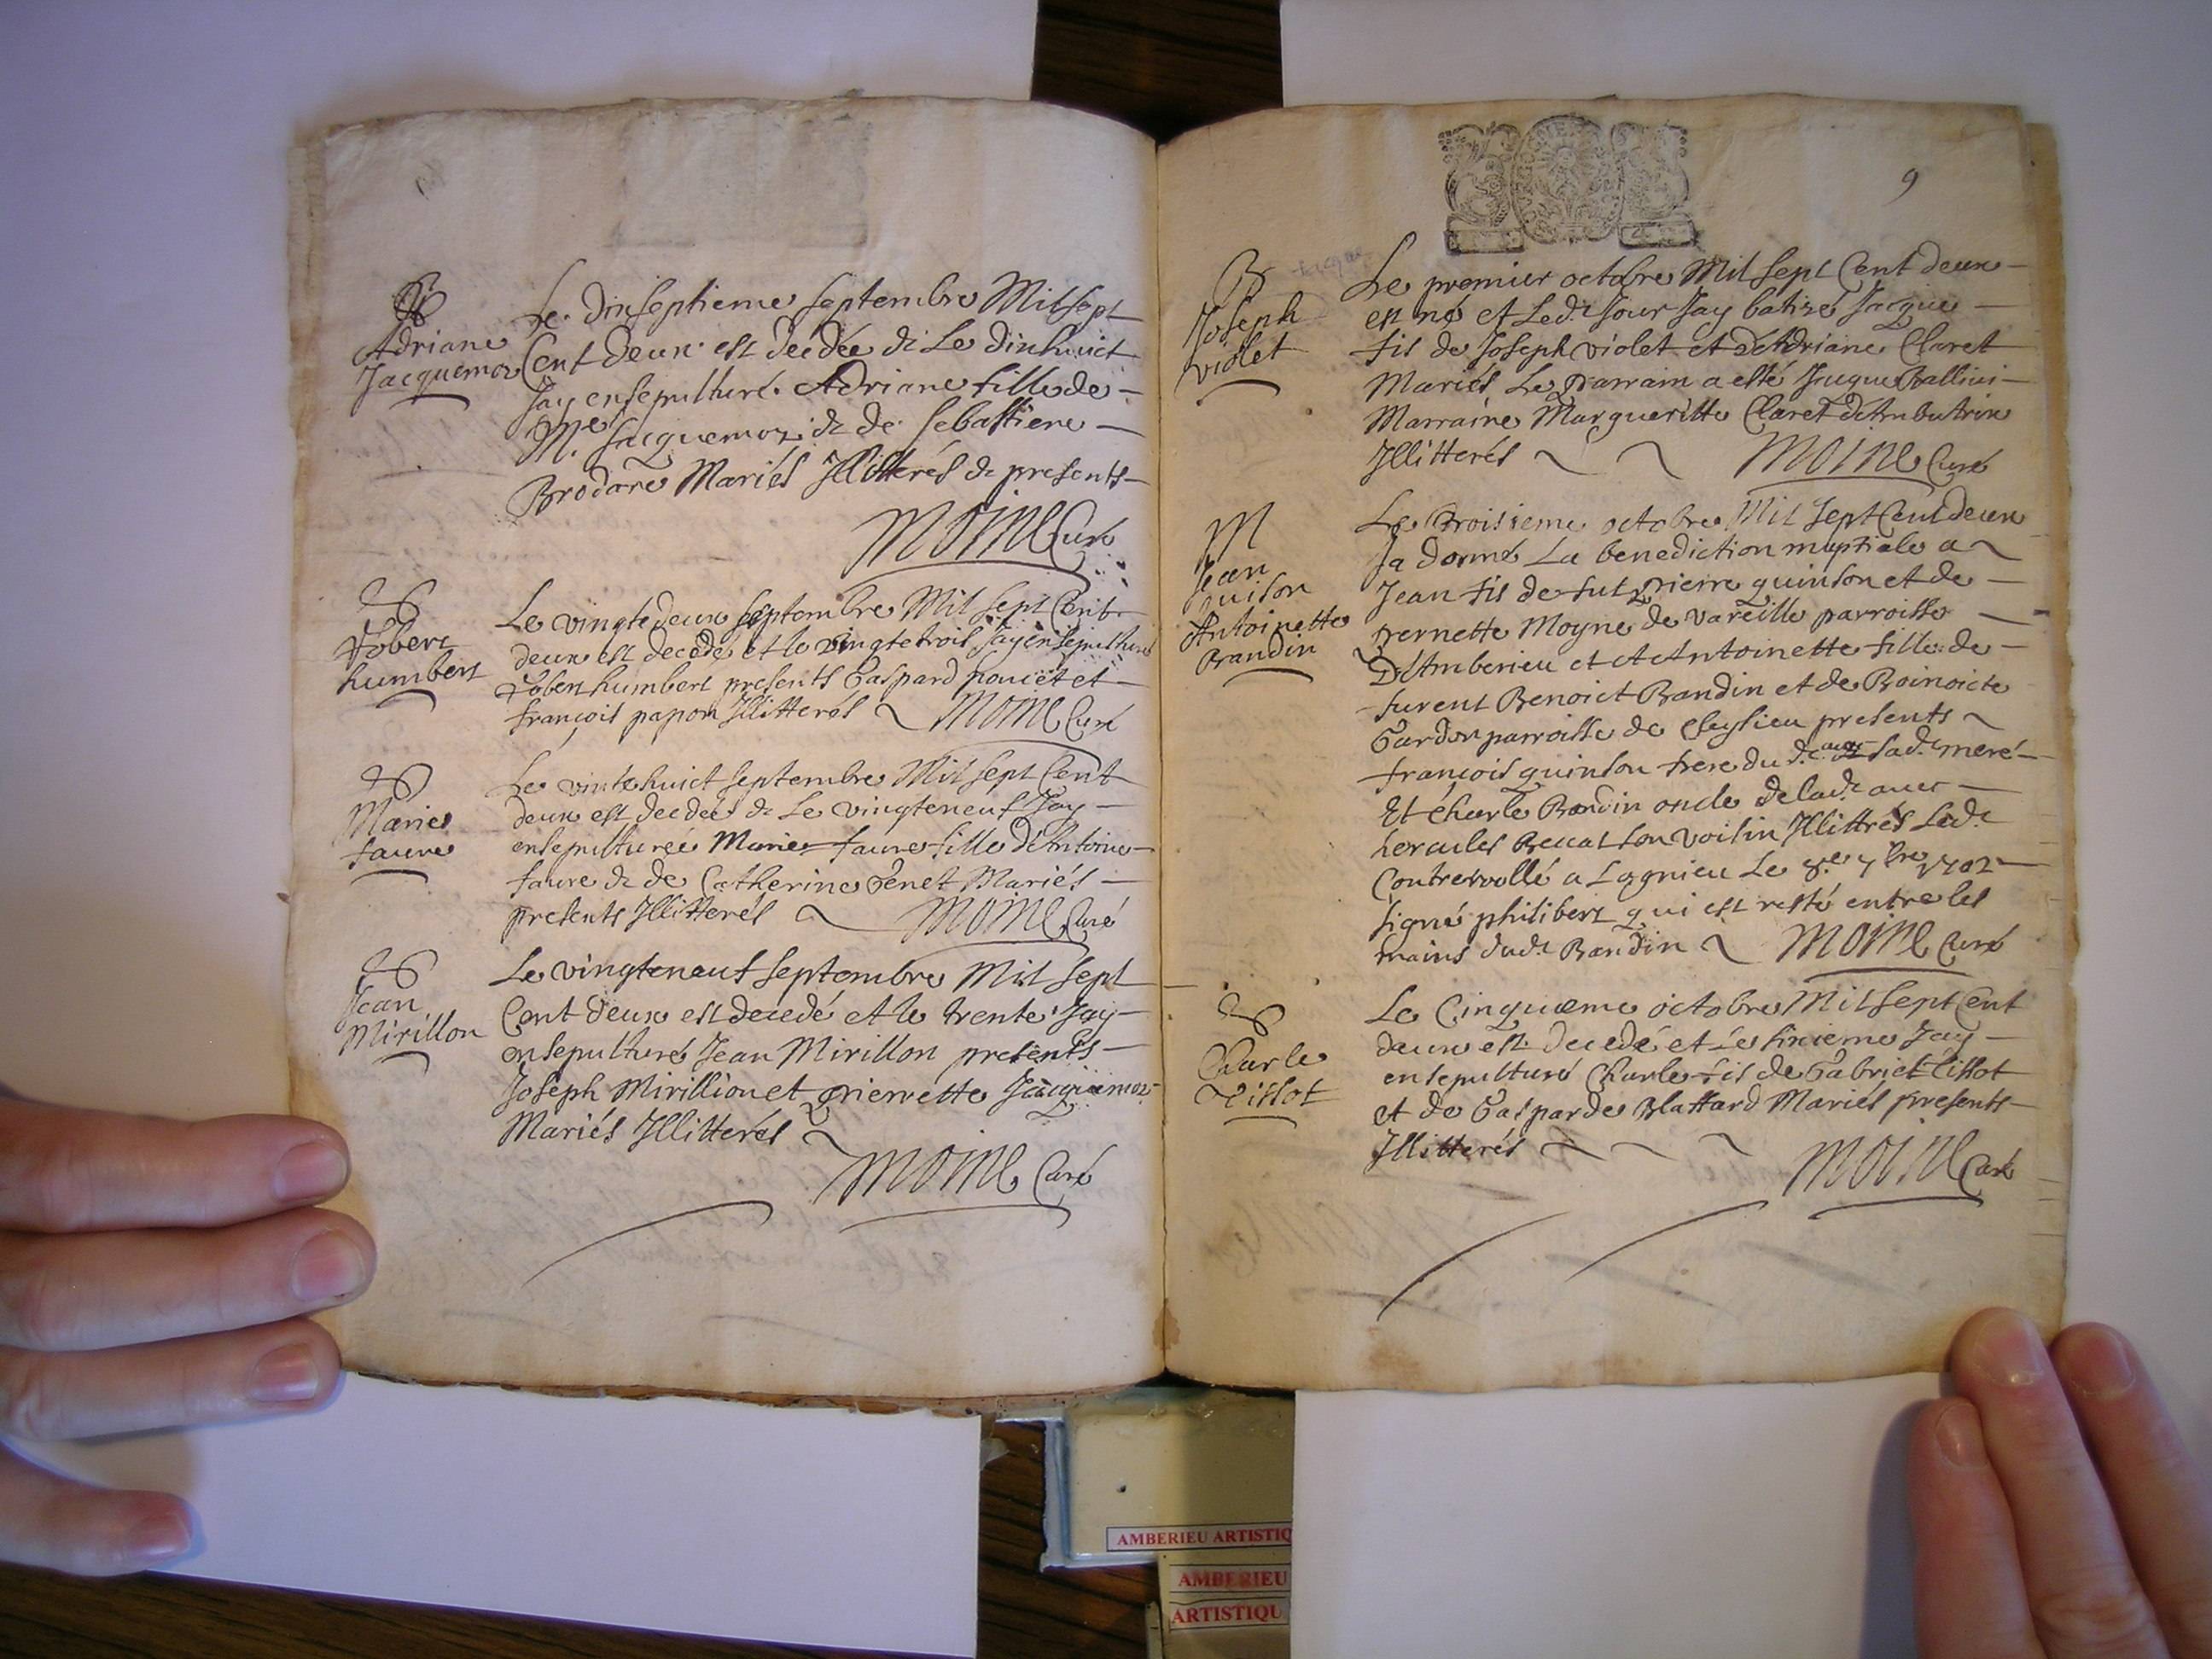 Adriane
Jacquemoz
Le dixseptieme septembre Mil sept
Cent deux est decedée & Le dixhuict
Jay ensepulturé Adriane fille de
Me Jacquemoz & de Sebastiene
Brodare Mariés Illitterés & presents
MOINE Curé
humbert
Le vingtedeux septembre Mil sept Cent
deux est decedé et le vingtetrois Jay ensepulturé
humbert presents Gaspard poncet et
françois papon Illitterés MOINE Curé
Marie
faure
Le vintehuict septembre Mil sept Cent
deux est decedée & Le vingteneuf Jay
ensepulturée Marie faure fille d'Antoine
faure & de Catherine Genet Mariés
presents Illitterés MOINE Curé
Jean
Mirillon
Le vingteneuf septembre Mil sept
Cent deux est decedé et le trente Jay
ensepulturé Jean Mirillon presents
Joseph Mirillion et pierrette Jacquemoz
Mariés Illitterés
MOINE Curé
9
B
Joseph
violet
Le premier octobre Mil sept Cent deux
est né et Ledt Jour Jay batizé Jacque
fils de Joseph violet et d'Adriane Claret
Mariés Le parrain a esté Jacque Ballivi
Marraine Margueritte Claret d'Ambutrix
Illitterés MOINE Curé
M
Jean
quison
Antoinette
Brandin
Le troisieme octobre Mil sept Cent deux
Ja donné La benediction nuptiale a
Jean fils de fut pierre quinson et de
pernette Moyne de vareille parroisse
D'Amberieu et A Antoinette fille de
furent Benoict Bandin et de Boinoicte
Gardon parroisse de Cleysieu presents
françois quinson frere du dt avec sadt mere
Et Charle Bandin oncle de ladt avec
hercules Beccat son voisin Illittrés Ledt
Contrerollé a Lagnieu Le 8e 7bre 1702
signé philibert qui est resté entre les
mains dudt Bandin MOINE Curé
Charle
Tissot
Le Cinquieme octobre Mil sept Cent
deux est decedé et Le sixieme Jay
ensepulturé Charle fils de Gabriel tissot
et de Gasparde Blattard Mariés presents
Illitterés MOINE Curé
AMBERIEU ARTISTIQ
AMBERIEU
ARTISTIQU